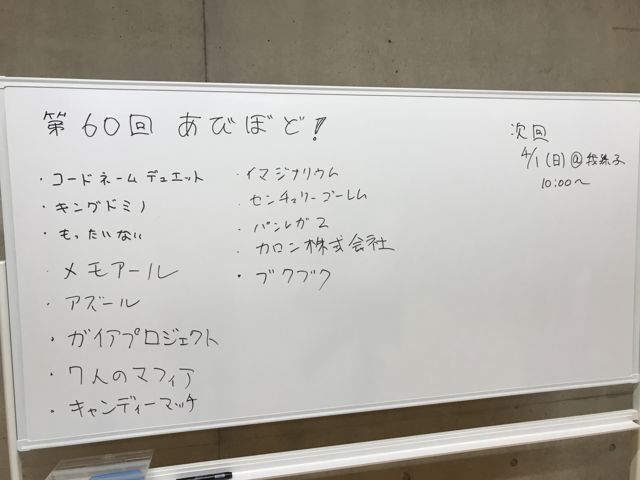 第60回 あびぼど!
・コードネームデュエット
・キングドミノ
・もったいない
・メモアール
・アズール
・ガイアプロジェクト
・7人のマフィア
・キャンディーマッチ
・イマジナリウム
・センチュリーゴーレム
・バンレガス
・カロン株式会社
・ブクブク
次回
4/1(日)@我孫子
10:00〜